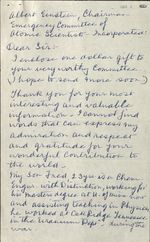 Albert Einstein, Chairman
Emergency Committee of
Atomic Scientists Incorporated
Dear Sir:
I enclose one dollar gift to
your very worthy Committee
I hope to send more soon)
Thank you for your most
interesting and valuable
information. I cannot find
words that can express my
admiration and respect
and gratitude for your
wonderful contribution to
the world.
My son Fred 23 yrs is a Chem
Engin. with
his masters degree at U. of
and assisting teaching in Physics
he worked at Oak Ridge Tennessee
in the Uranium during the
war